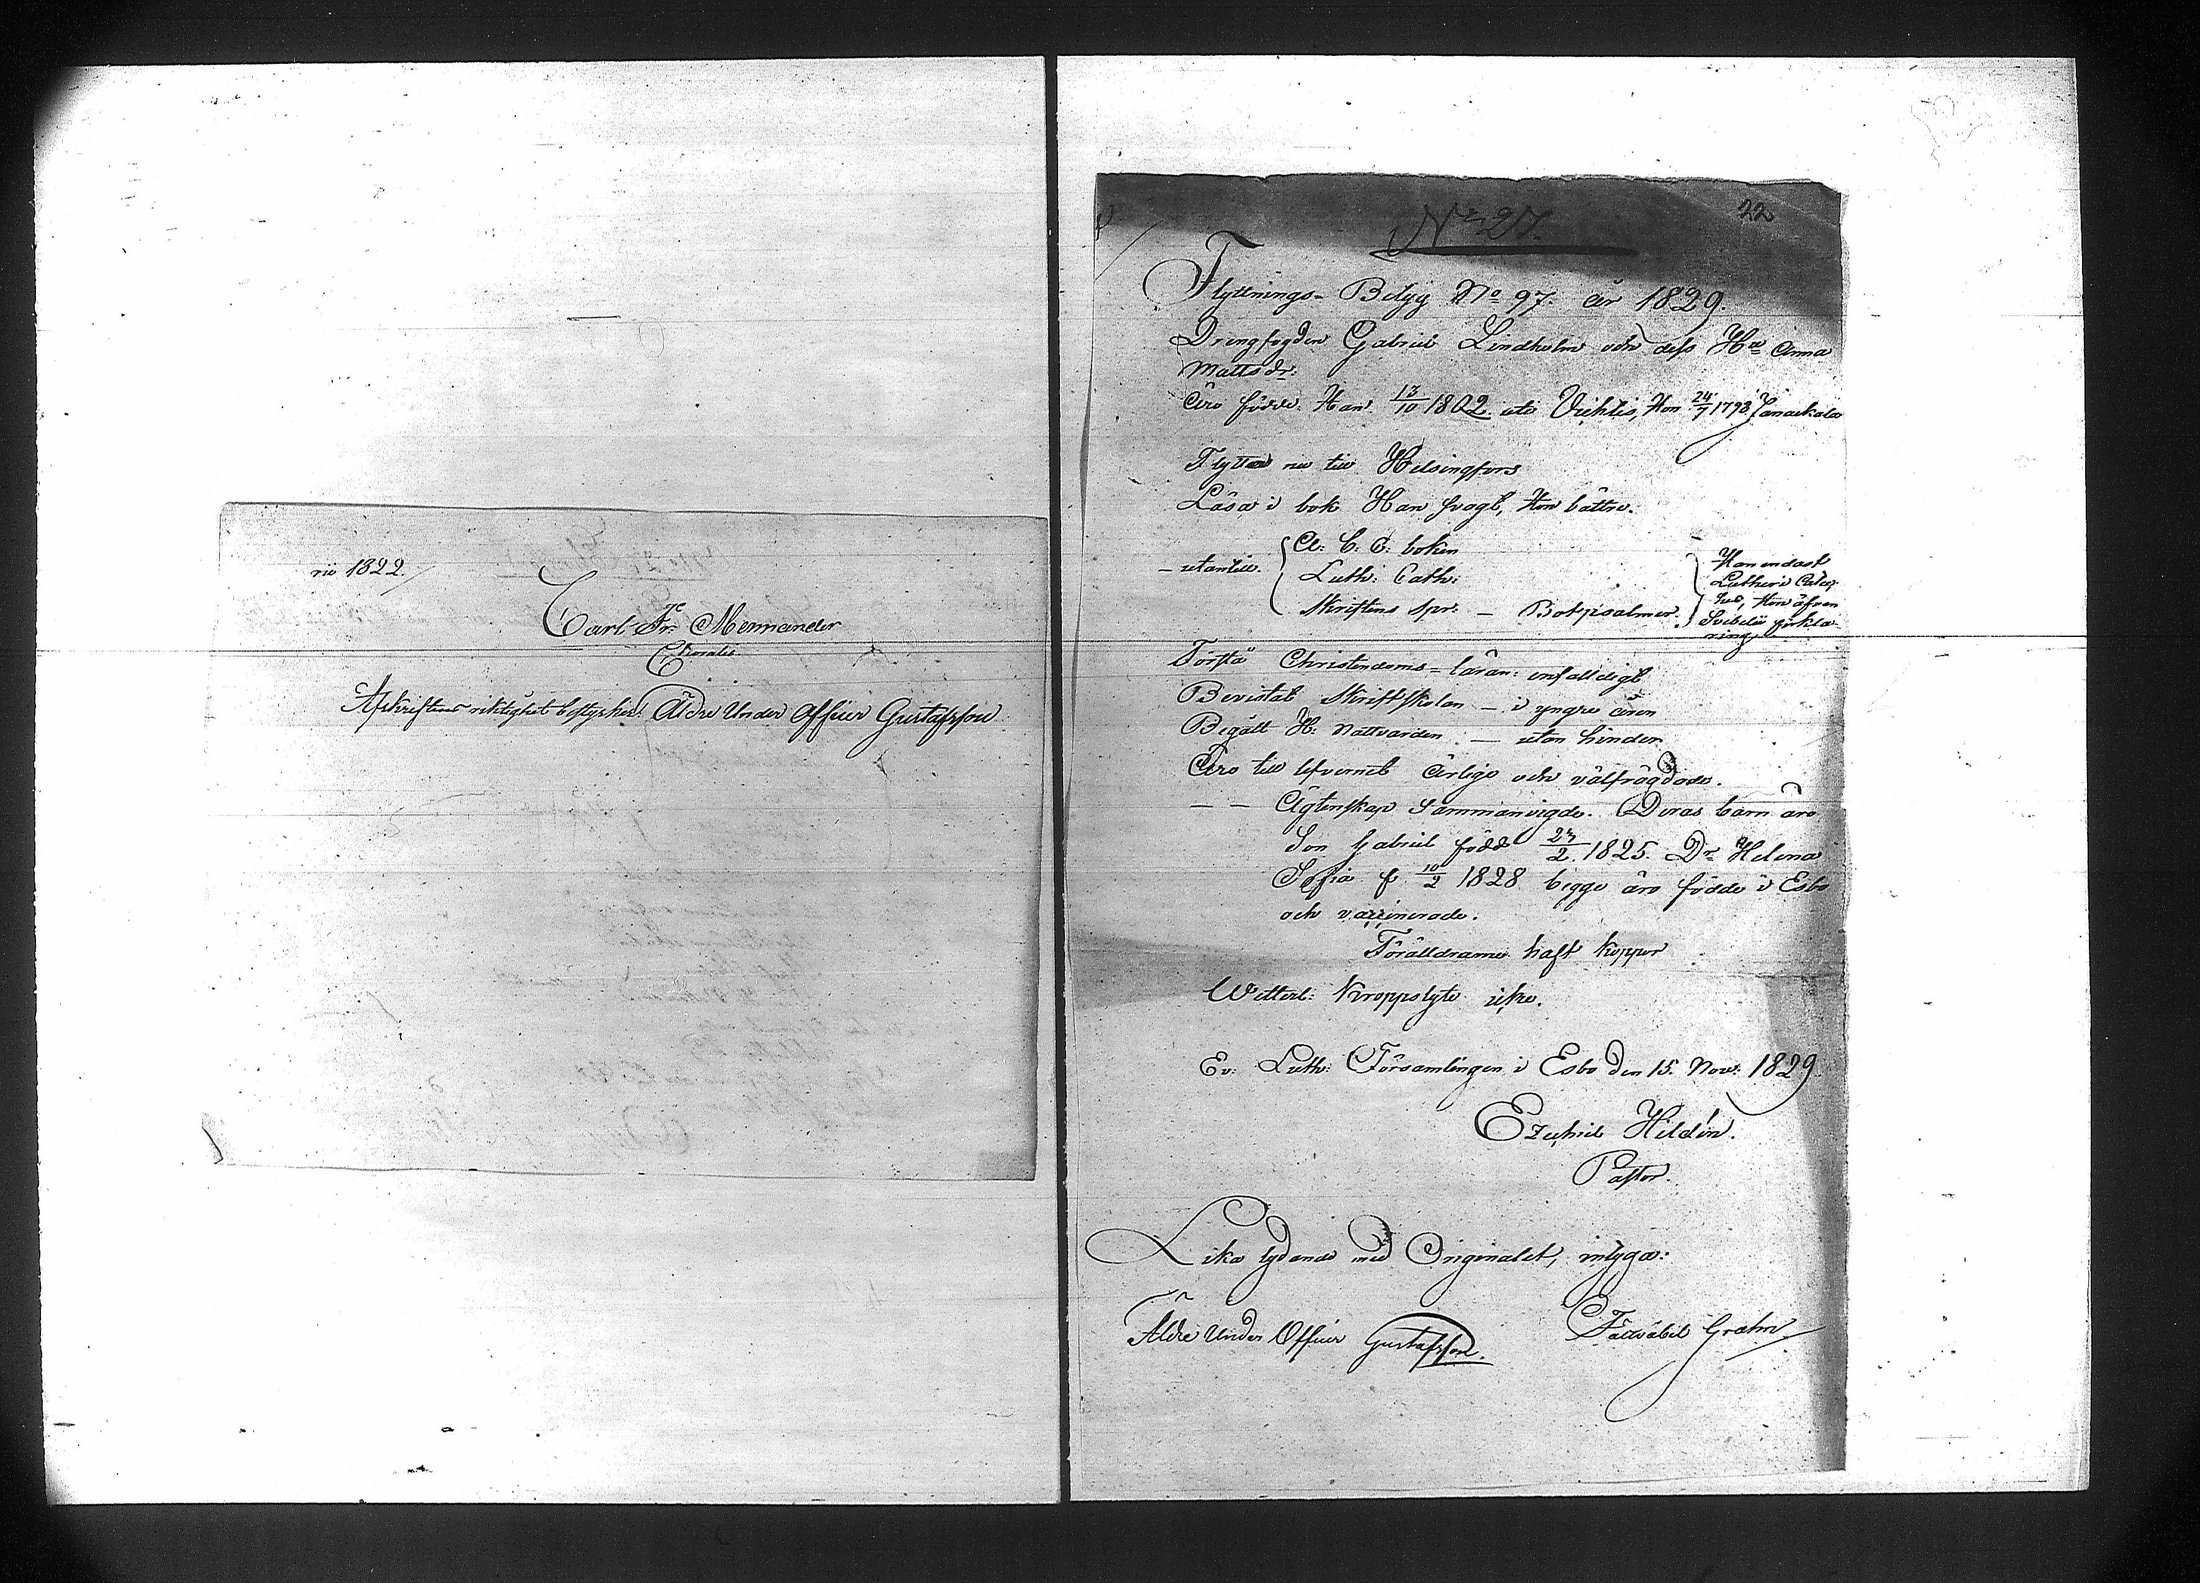 rii 1822.
Carl Fr. Mennander
Afskriftens riktighet bestyrker Äldre Under Officer Gustafsson
22
No 27.
Flyttnings-Betyg No 97. år 1829.
Drengfogden Gabriel Lindholm och dess Hu Anna
Mattsdr:
Äro födde: Han 13/10 1802 uti Vichtis, Hon 24/7 1798 Janackala
Flyttar nu till Helsingfors
Läsa i bok Han svagt, Hon bättre.
- utantill. A: B: C: boken
Luth: Cath:
Skriftens spr. - Botpsalmer.
Han endast
Lutheri Catec-
hes, Hon äfven
Svebelii förkla-
ring
Förstå Christendoms-läran: enfaldigt
Bevistat Skriftskolan - i yngre åren
Begått H: Nattvarden - utan hinder
Äro till lefvernet Ärlige och välfrägdade.
- - Ägtenskap Sammanvigde. Deras barn äro
Son Gabriel född 23/2. 1825. Dr Helena
Sofia f. 10/2 1828 begge äro födde i Esbo
och vaccinerade.
Föräldrarne haft koppor
Witterl: Kroppslyte icke.
Ev: Luth: Församlingen i Esbo den 15. Nov: 1829.
Ezechiel Hildén.
Pastor.
Lika lydande med Originalet, intyga:
Äldre Under Officer Gustafsson.
Fältväbel Grahn